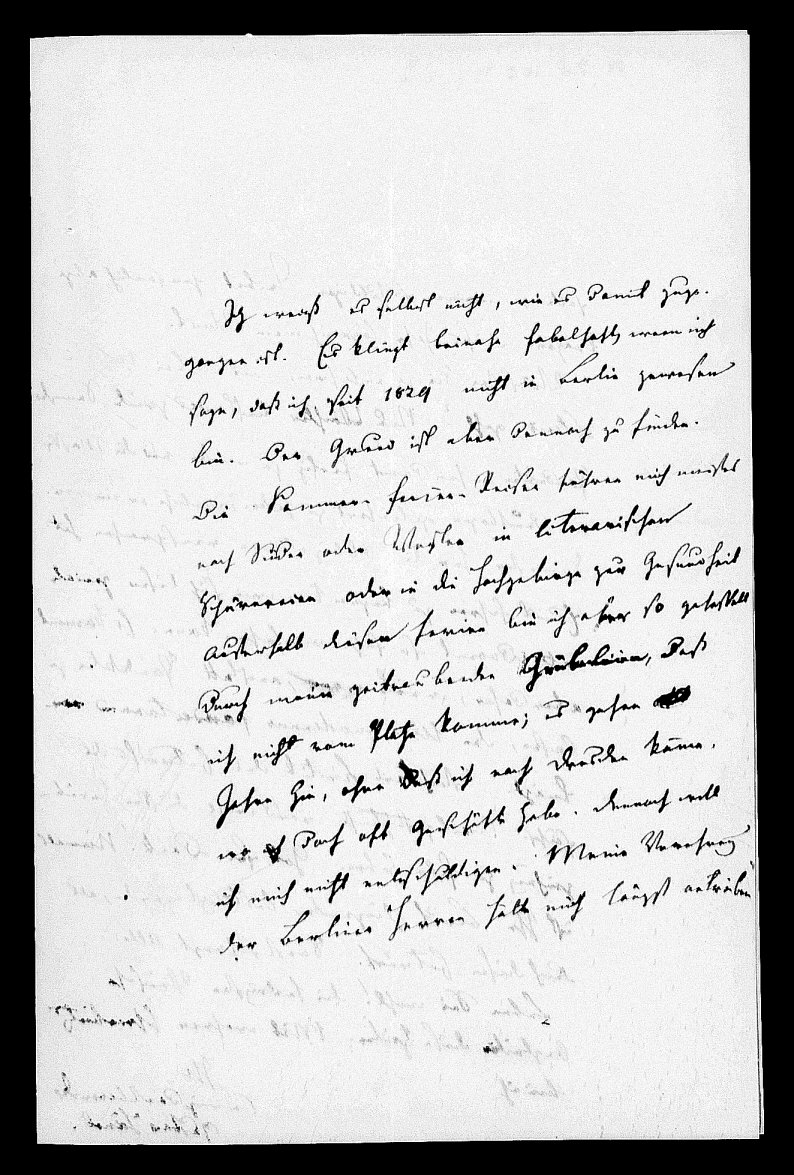 Ich weiß es selbst nicht, wie es damit zuge-
gangen ist. Es klingt beinahe fabelhaft, wenn ich
sage, daß ich seit 1829 nicht in Berlin gewesen
bin. Der Grund ist aber dennoch zu finden.
Die Sommer-Ferien-Reisen führen mich meistens
nach Süden oder Westen in literarischen
oder in die Hochgebirge zur Gesundheit
Außerhalb dieser Ferien bin ich aber so gefesselt
durch meine zeitraubenden Grübeleien, daß
ich nicht vom Platze komme; es gehen
Jahre hin, ohne daß ich nach Dresden komme,
wo ich doch oft Geschäfte habe. Dennoch will
ich mich nicht entschuldigen. Meine Verehrung
der Berliner Herren hätte mich längst antreiben